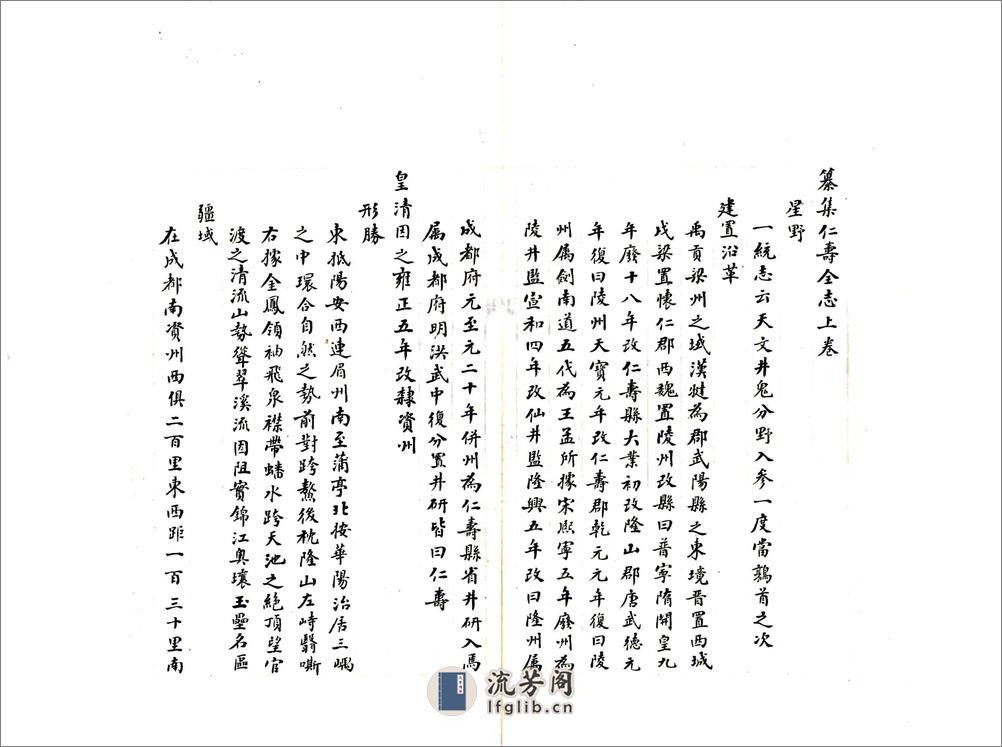 纂集仁壽全志上卷
星野
一統志云天文井鬼分野入參一度當鶉首之次
建置沿革
禹貢梁州之域漢犍為郡武陽縣之東境晉置西城
戍梁置懷仁郡西魏置陵州改縣曰普寧隋開皇九
年廢十八年改仁壽縣大業初改隆山郡唐武德元
年復曰陵州天寶元年改仁壽郡乾元元年復曰陵
州属劍南道五代為王孟所據宋熙寧五年廢州為
陵井監宣和四年改仙井監隆興五年改曰隆州属
成都府元至元二十年併州為仁壽縣省井研入焉
属成都府明洪武中復分置井研皆曰仁壽
皇清因之雍正五年改隸資州
形勝
東抵陽安西連眉州南至蒲亭北按華陽治居三嵎
之中環合自然之勢前對跨鰲後枕隆山左峙翳嘶
右據金鳳領袖飛泉襟帶蟠水跨天池之絕頂望官
渡之清流山勢聳翠溪流因阻實錦江奥壤玉壘名區
疆域
在成都南資州西俱二百里東西距一百三十里南
流芳阁
lfglib.cn